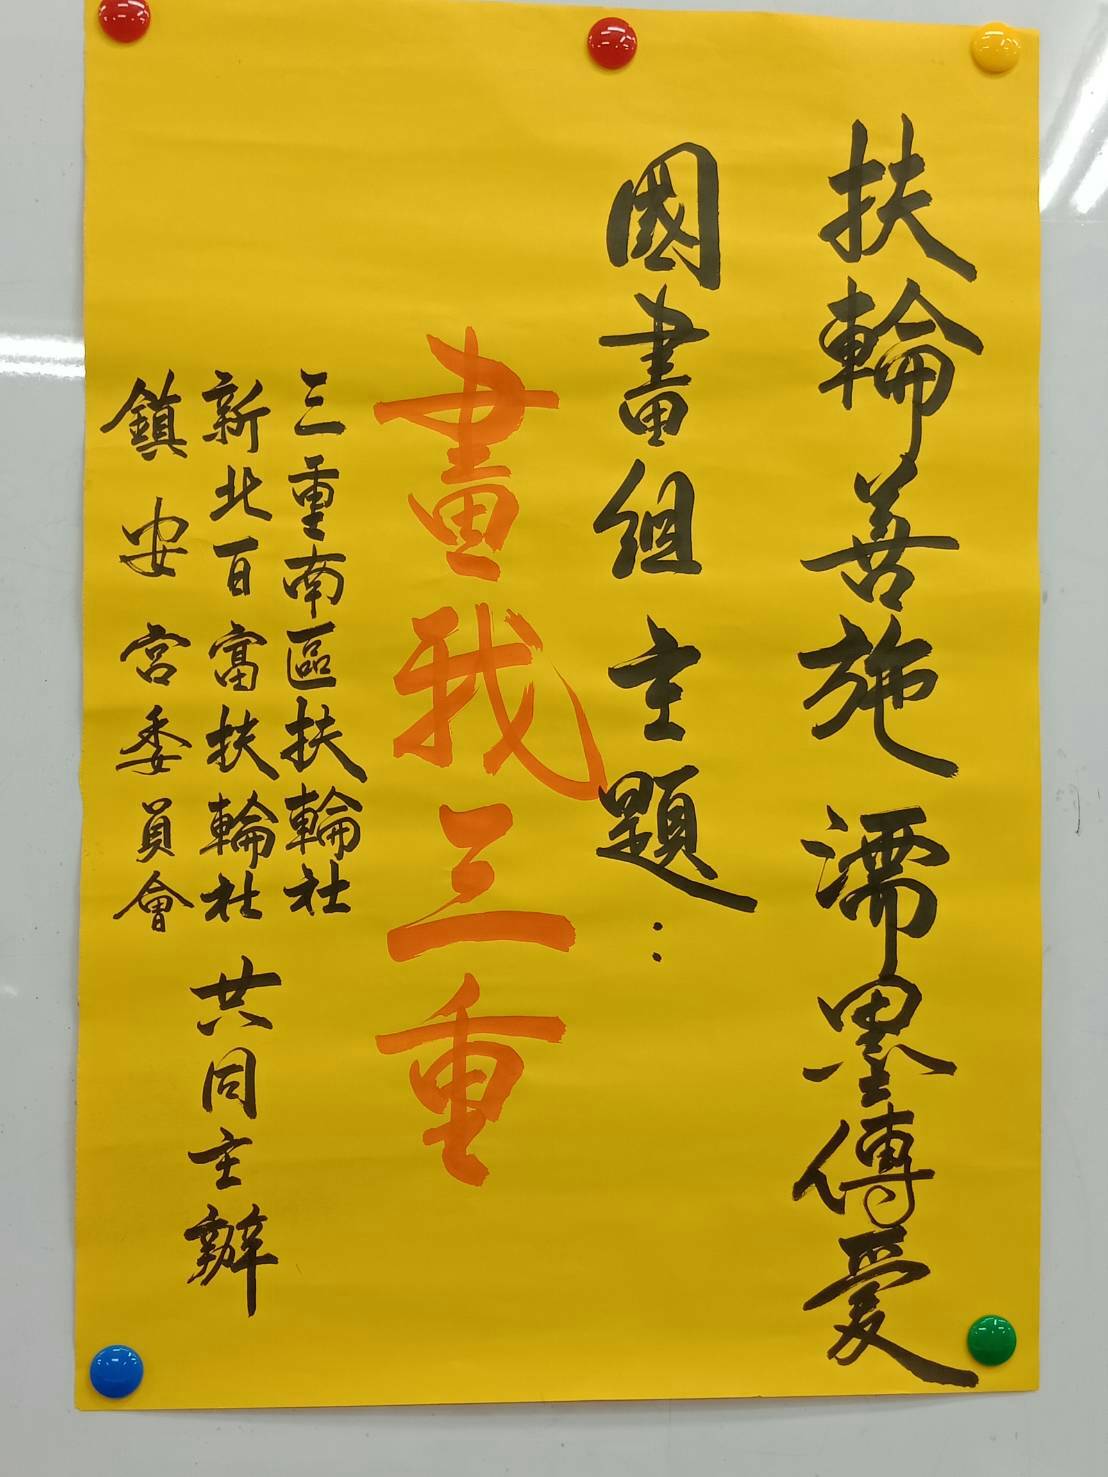 扶輪善施 濡墨傳愛
國畫組主題：
畫我三重
三重南區扶輪社
新北百富扶輪社
鎮安宮委員會
共同主辦